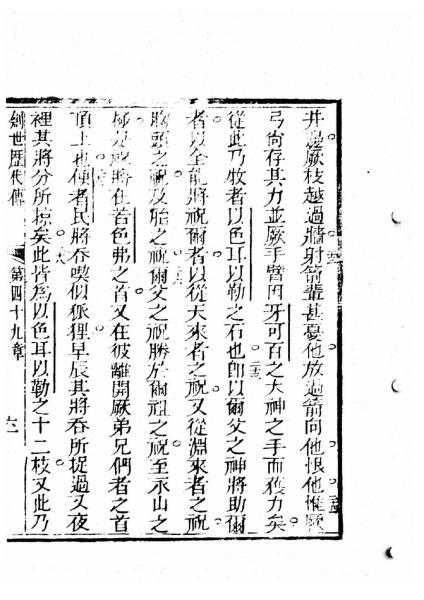 井邊厥枝越過牆射箭輩甚憂他放過箭向他恨他惟厥
弓尙存其力並厥手臂因牙可百之大神之手而獲力矣
從此乃牧者以色耳以勒之石也卽以爾父之神將助爾
者以全能將祝爾者以從天來者之祝又從淵來者之祝
胸頭之祝及胎之祝爾父之祝勝於爾祖之祝至永山之
極是祝將在若色弗之首又在彼離開厥弟兄們者之首
頂上也便者民將吞喫似狐狸早辰其將吞所捉過又夜
裡其將分所掠矣此皆為以色耳以勒之十二枝又此乃
創世歷代傳
第四十九章
六一